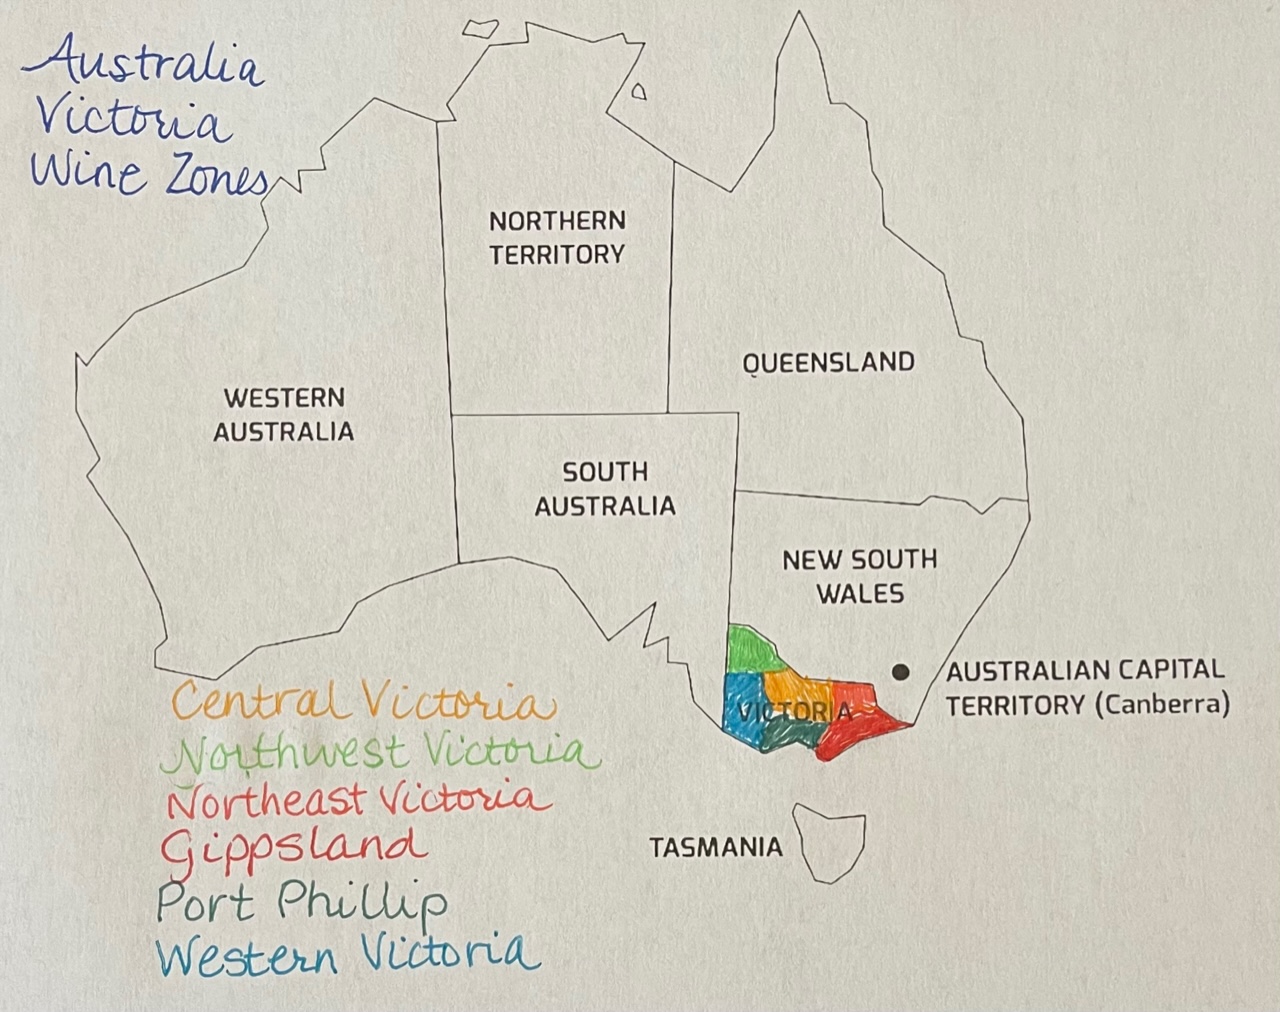 Australia
Victoria
Wine Zones
NORTHERN
TERRITORY
QUEENSLAND
WESTERN
AUSTRALIA
SOUTH
AUSTRALIA
NEW SOUTH
WALES
AUSTRALIAN CAPITAL
TERRITORY (Canberra)
VICTORIA
TASMANIA
Central Victoria
Northwest Victoria
Northeast Victoria
Gippsland
Port Phillip
Western Victoria